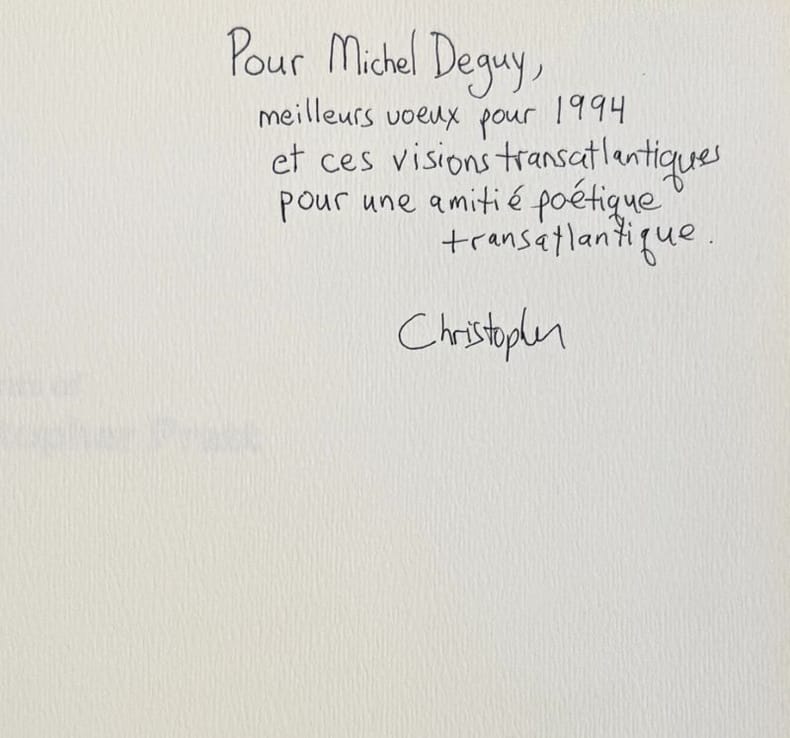 Pour Michel Deguy,
meilleurs voeux pour 1994
et ces visions transatlantiques
pour une amitié poétique
transatlantique.
Christopher